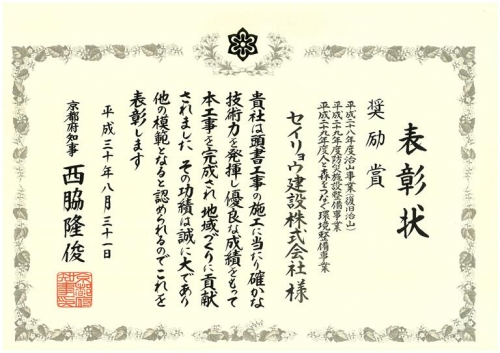 表彰状
奨励賞
平成二十八年度治山事業(復旧治山)
平成二十九年度防災施設整備事業
平成二十九年度人と森をつなぐ環境整備事業
セイリョウ建設株式会社 様
貴社は頭書工事の施工に当たり確かな
技術力を発揮し優良な成績をもって
本工事を完成され地域づくりに貢献
されました その功績は誠に大であり
他の模範となると認められるのでこれを
表彰します
平成三十年八月三十一日
京都府知事 西脇隆俊